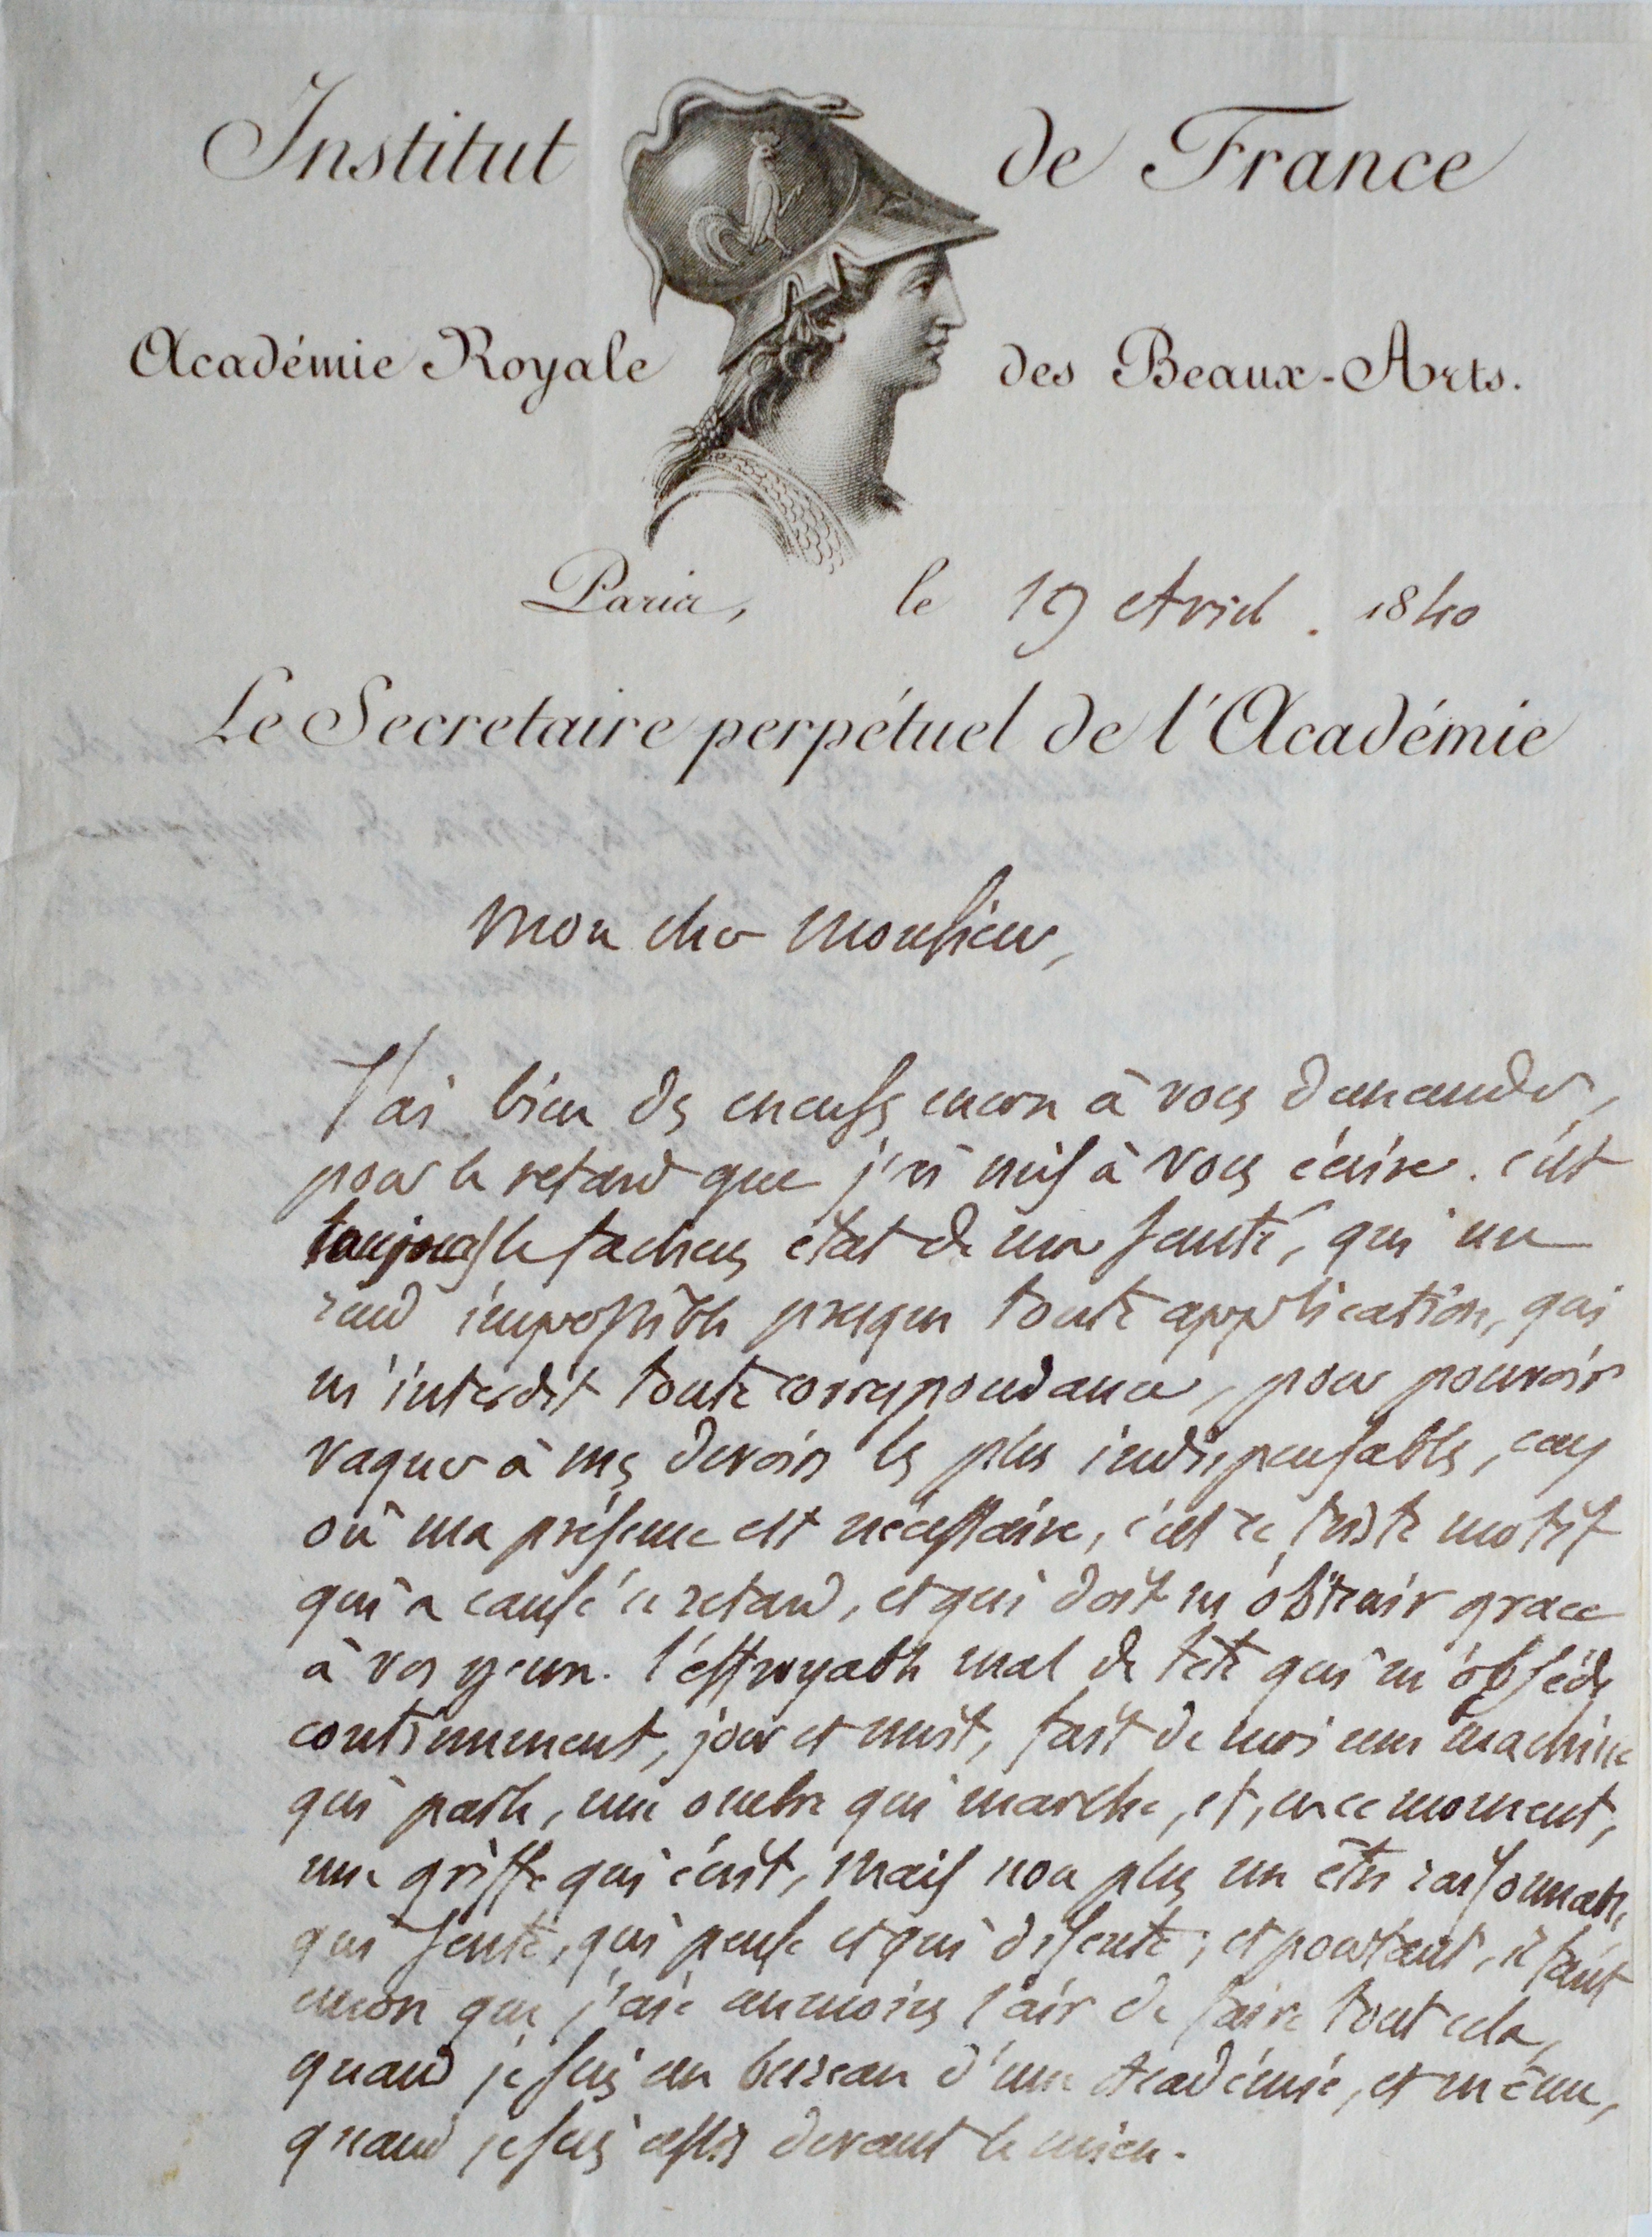 Institut de France
Académie Royale des Beaux-Arts.
Paris, le 19 Avril . 1840
Le Secretaire perpétuel de l'Académie
Mon cher Monsieur,
J'ai bien des excuses encore à vous demander,
pour le retard que j'ai mis à vous écrire. c'est
toujours le facheux état de ma santé, qui me
rend impossible presque toute application, qui
m'interdit toute correspondance, pour pouvoir
vaquer à mes devoirs les plus indispensables, ceux
où ma présence est nécessaire, c'est ce triste motif
qui a causé ce retard, et qui doit m'obtenir grace
à vos yeux. l'effroyable mal de tête qui m'obsède
continument, jour et nuit, fait de moi une machine
qui parle, une ombre qui marche, et, en ce moment,
une griffe qui écrit, mais non plus un être raisonnable,
qui sente, qui pense et qui discute; et pourtant, il faut
encore que j'aie au moins l'air de faire tout cela,
quand je suis au bureau d'une Académie, et même,
quand je suis assis devant le mien.